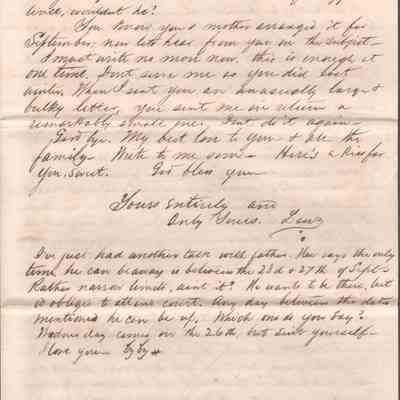 ience, wouldn't do?
You know you & mother arranged it for
September, now lets hear from you on the subject—
I must write no more now, this is enough at
one time. Dont serve me as you did last
winter. When I sent you an unusually large &
bulky letter, you sent me in return a
remarkably small one. Dont do it again—
Good bye. My best love to you & all the
family— Write to me soon— Here's a Kiss for
you, sweet. God bless you—
Yours Entirely and
Only Yours.
I've just had another talk with father. He says the only
time he can be away is between the 23d & 27th of Sept—
Rather narrow limits, aint it? He wants to be there, but
is obliged to attend court. Any day between the dates
mentioned he can be up. Which one do you say?
Wednesday comes on the 26th, but suit yourself—
I love you— by by